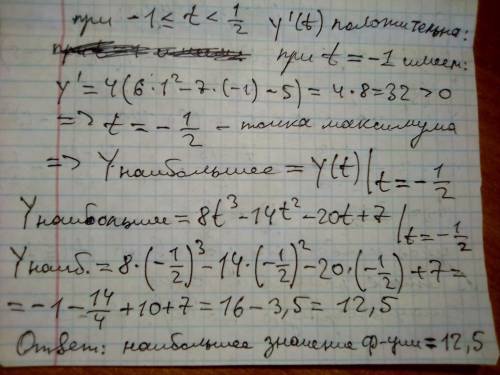 при -1 ≤ t < 1/2 y'(t) положительна:
при t = -1 имеем:
y' = 4(6·1² - 7·(-1) - 5) = 4·8 = 32 > 0
=> t = -1/2 - точка максимума
=> Yнаибольшее = Y(t) | t = -1/2
Yнаибольшее = 8t³ - 14t² - 20t + 7 | t = -1/2
Yнаиб. = 8·(-1/2)³ - 14·(-1/2)² - 20·(-1/2) + 7 =
= -1 - 14/4 + 10 + 7 = 16 - 3,5 = 12,5
Ответ: наибольшее значение ф-ции = 12,5